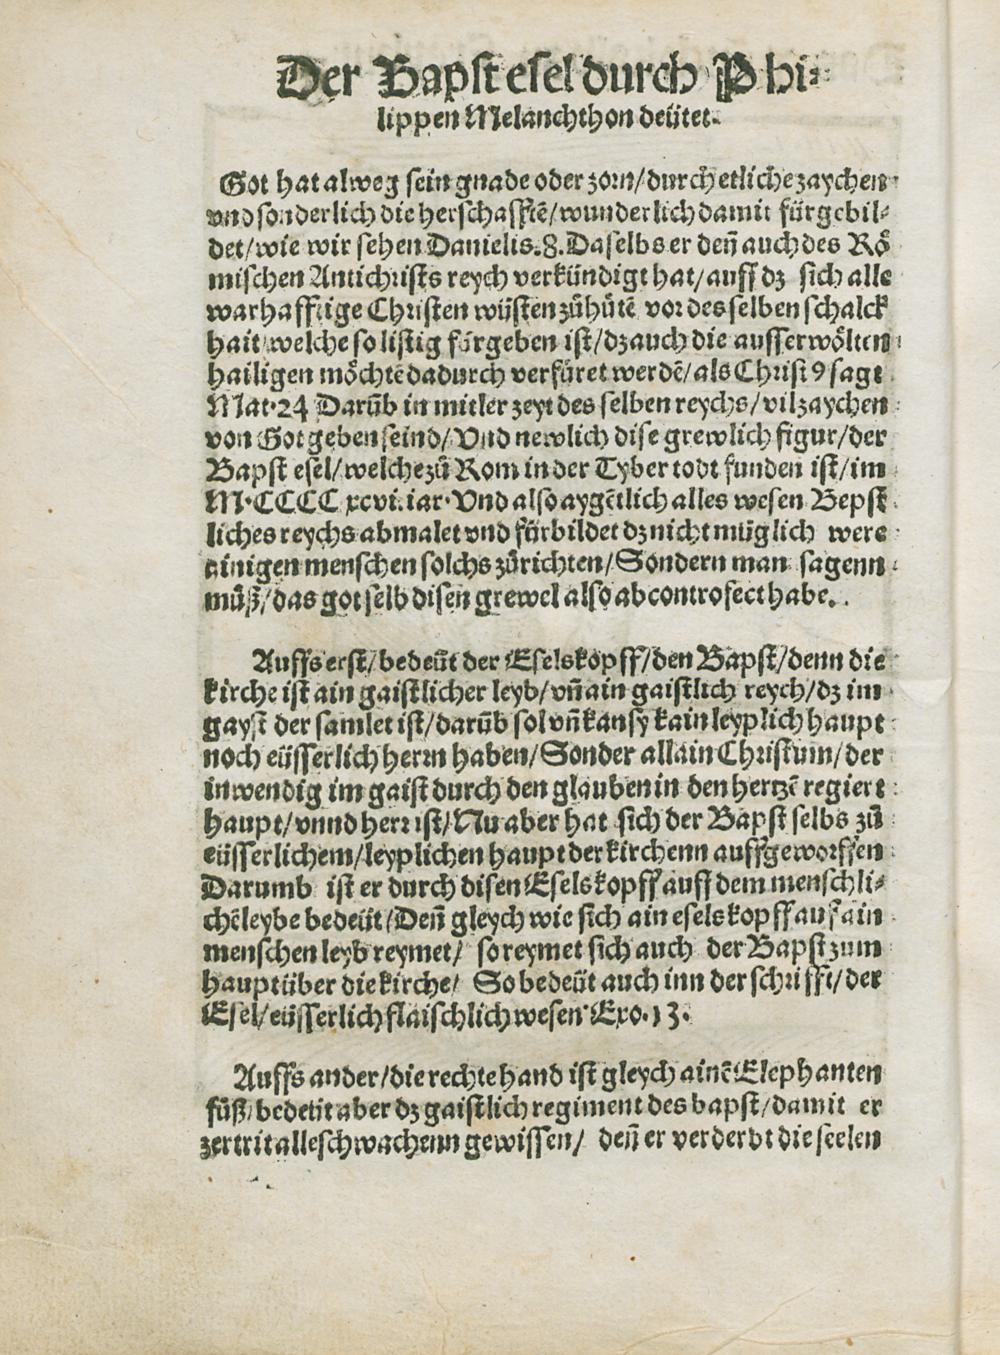 Der Bapst esel durch Phi⸗
lippen Melanchthon deütet.
Got hat alweg sein gnade oder zorn/durch etliche zaychen
vnd sonderlich die herschafftē/wunderlich damit fürgebil⸗
det/wie wir sehen Danielis.8. Daselbs er den̄ auch des Rô
mischen Antichrists reych verkündigt hat/auff dz sich alle
warhafftige Christen wüsten zůhůtē vor des selben schalck
hait/welche so listig fürgeben ist/dz auch die ausserwôlten
hailigen môchtē dadurch verfüret werdē/als Christ9 sagt
Mat.24 Darūb in mitler zeyt des selben reychs/vil zaychen
von Got geben seind/Vnd newlich dise grewlich figur/der
Bapst esel/welche zů Rom in der Tyber todt funden ist/im
M.CCCC xcvi.iar.Vnd also aygētlich alles wesen Bepst
liches reychs abmalet vnd fürbildet dz nicht müglich were
ainigen menschen solchs zůrichten/Sondern man sagenn
můß/das got selb disen grewel also abcontrofect habe..
Auffs erst/bedeüt der Eselskopff/den Bapst/denn die
kirche ist ain gaistlicher leyb/vn̄ ain gaistlich reych/dz im
gayst der samlet ist/darūb sol vn̄ kan sy kain leyplich haupt
noch eüsserlich herrn haben/Sonder allain Christum/der
inwendig im gaist durch den glauben in den hertzē regiert
haupt/vnnd herr ist/Nu aber hat sich der Bapst selbs zů
eüsserlichem/leyplichen haupt der kirchenn auffgeworffen
Darumb ist er durch disen Eselskopff auff dem menschli⸗
chē leybe bedeüt/Den̄ gleych wie sich ain eselskopff auf ain
menschen leyb reymet/ so reymet sich auch der Bapst zum
haupt über die kirche/ So bedeüt auch inn der schrifft/der
Esel/eüsserlich flaischlich wesen Exo.13.
Auffs ander/die rechte hand ist gleych ainē Elephanten
fůß/bedetit aber dz gaistlich regiment des bapst/damit er
zertrit alle schwachenn gewissen/ den̄ er verderbt die seelen